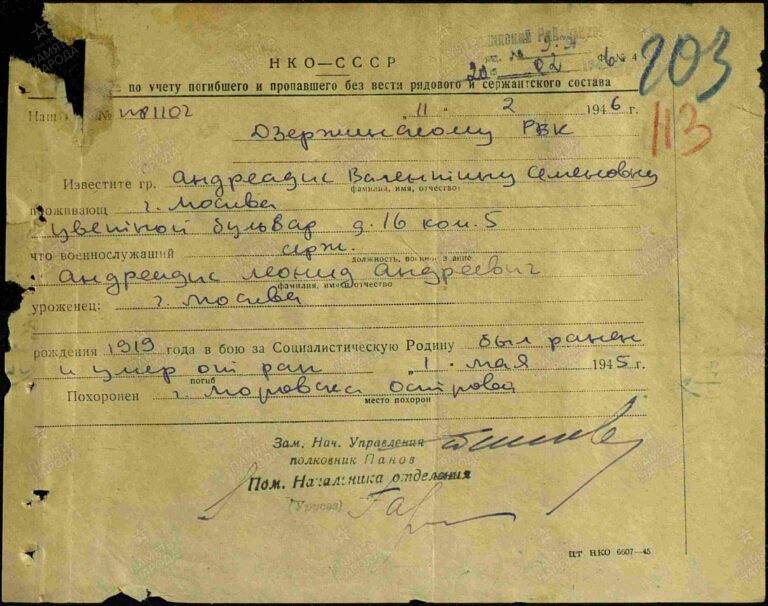 НКО—СССР
203
113
по учету погибшего и пропавшего без вести рядового и сержантского состава
Наш № 11. 2 1946 г.
Дзержинскому РВК
Известите гр. Андреадис Валентину Семеновну
фамилия, имя, отчество
проживающ г. Москва
Цветной бульвар д. 16 ком. 5
что военнослужащий серж.
должность, военное звание
Андреадис Леонид Андреевич
фамилия, имя, отчество
уроженец: г. Москва
рождения 1919 года в бою за Социалистическую Родину был ранен
и умер от ран „1. мая 1945 г.
погиб
Похоронен г. Моровска Острова
место похорон
Зам. Нач. Управления
полковник Панов
Пом. Начальника отделения
(Урусов)
ЦТ НКО 6607—45